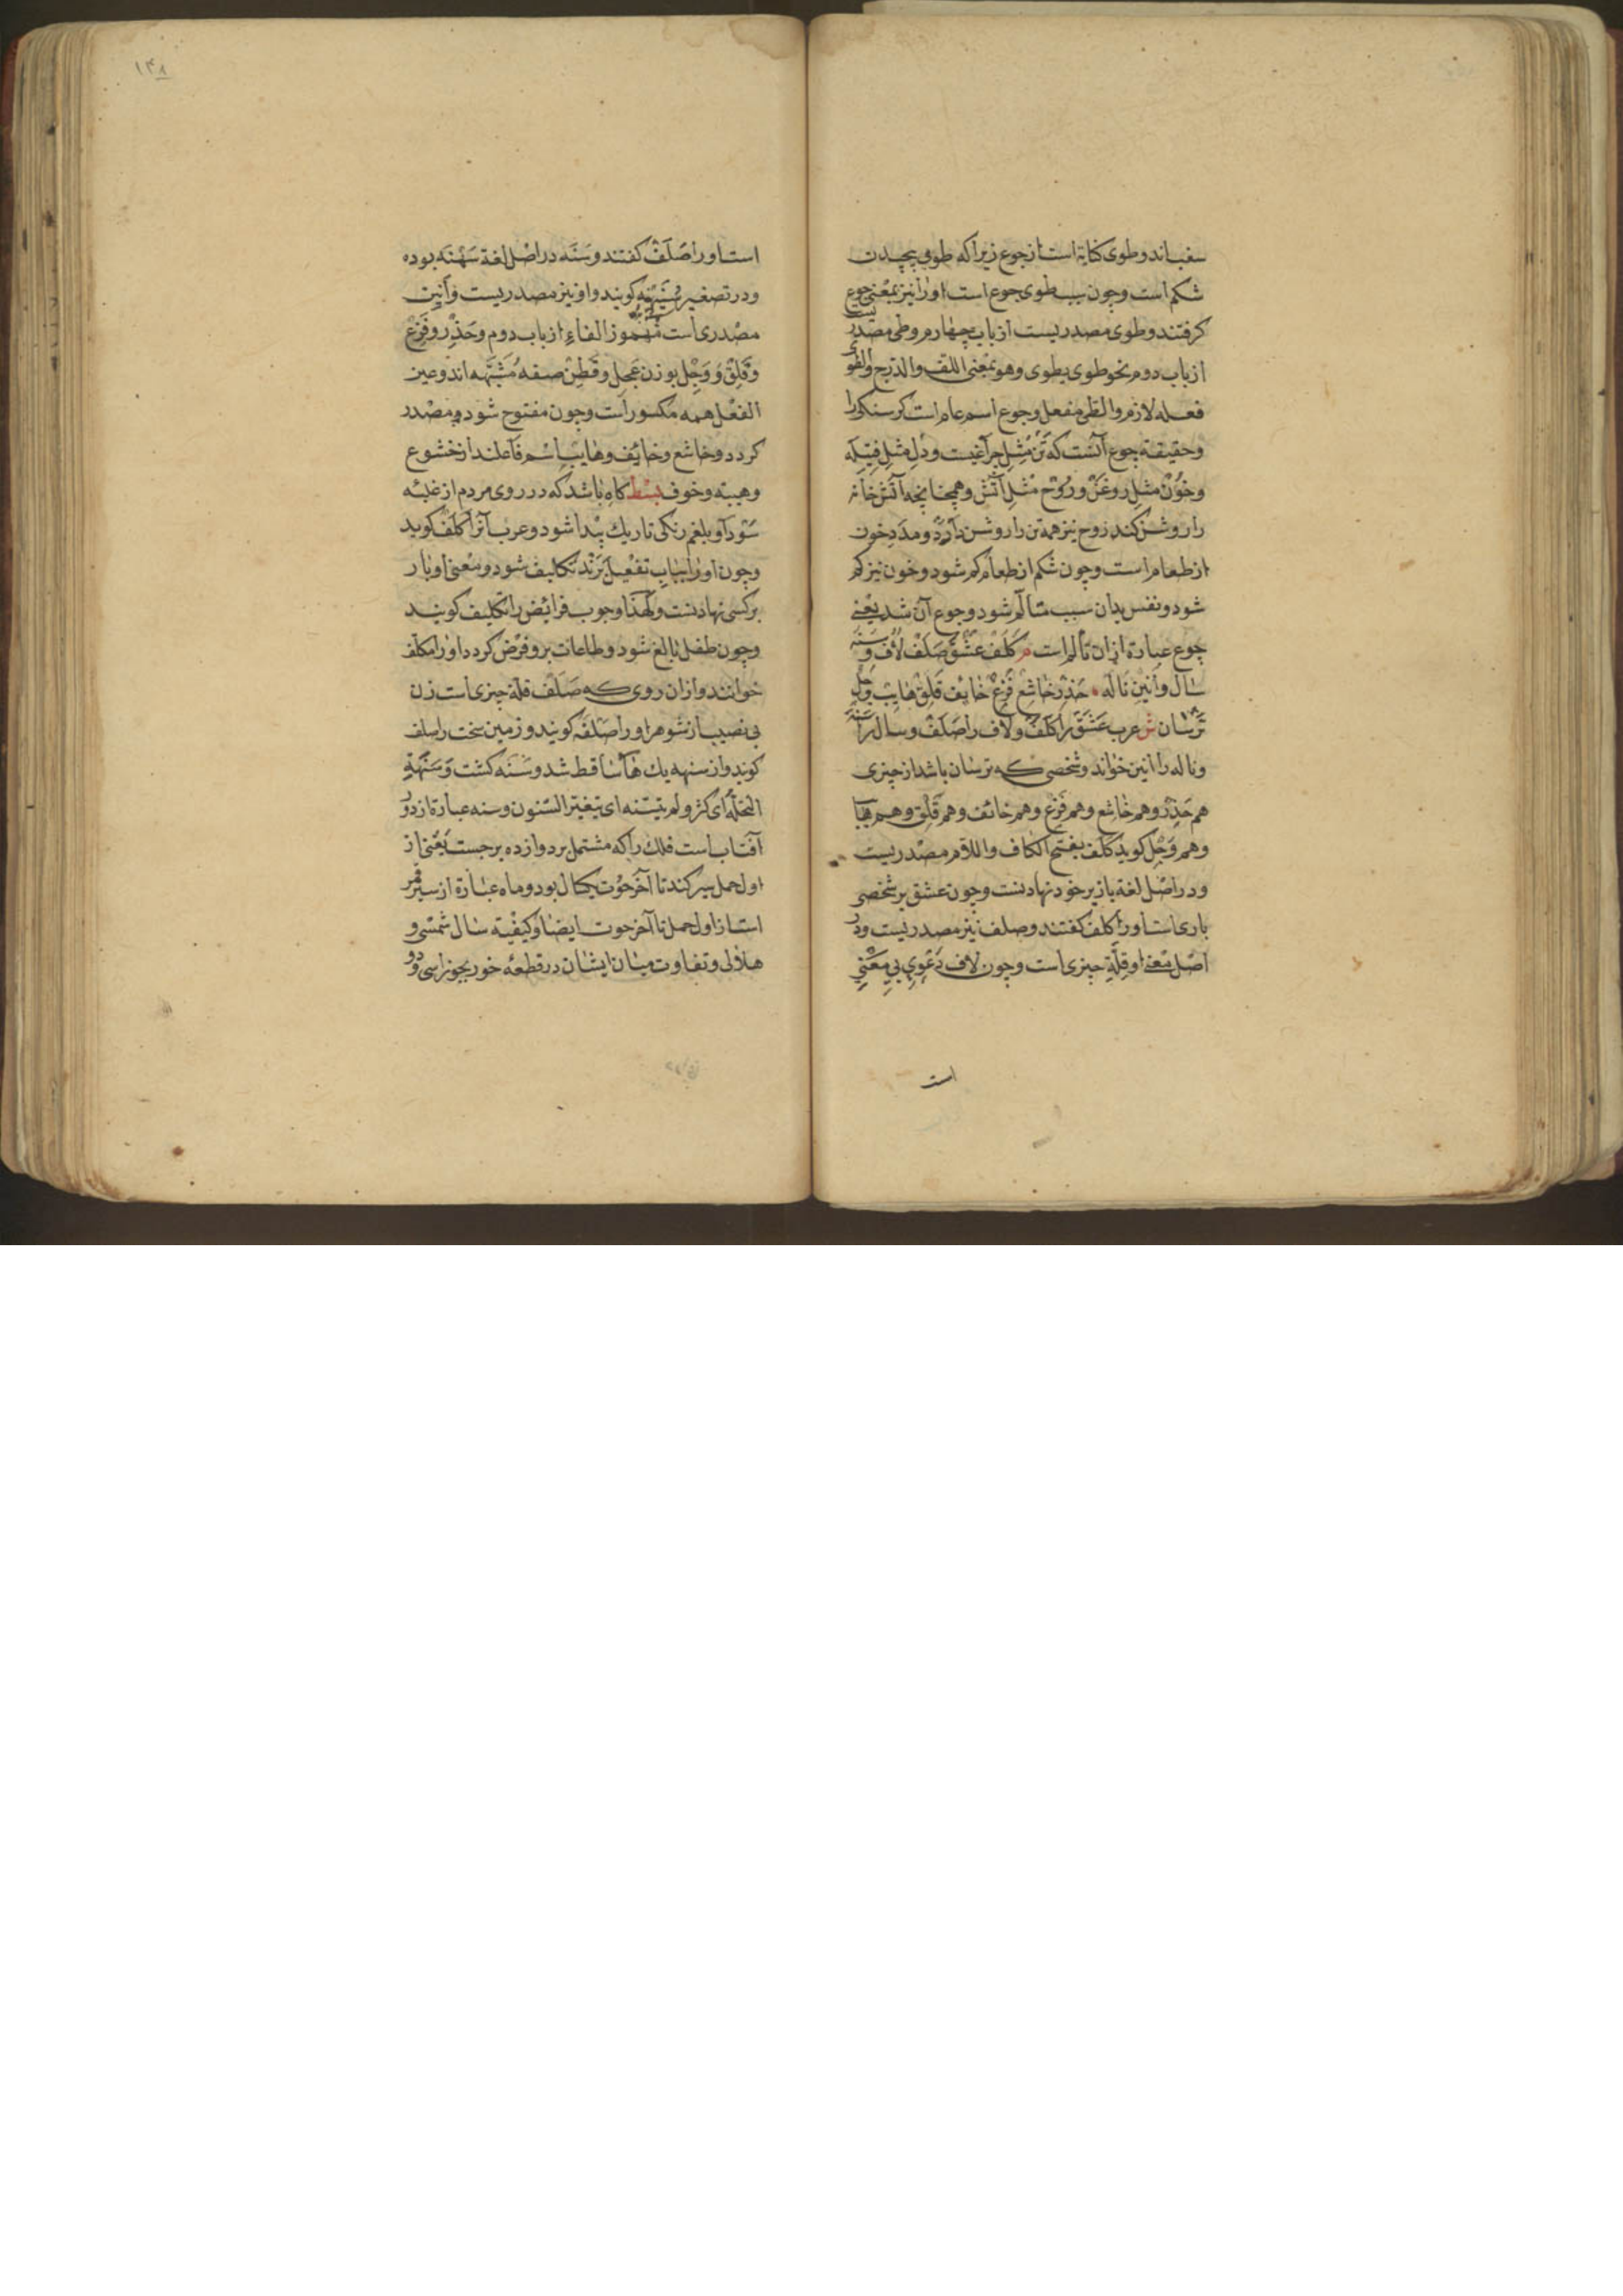 سغب‌اند و طوی کنایة است از جوع زیرا که طوی پیچیدن
شکم است و چون سبب طوی جوع است او را نیز بمعنی جوع
کرفتند و طوی مصدریست از باب چهارم و طی مصدریست
از باب دوم نحو طوی یطوی و هو بمعنی اللف والدرج والطوی
فعله لازم والطی منفعل و جوع اسم عام است کرسنکی را
و حقیقة جوع آنست که تن مثل چراغیست و دل مثل فتیله
و خون مثل روغن و روح مثل آتش و همچنانچه آتش خانه
را روشن کند روح نیز همه تن را روشن دارد و مدد خون
از طعام است و چون شکم از طعام کم شود و خون نیز کم
شود و نفس بدان سبب متألم شود و جوع آن شد یعنی
جوع عبارة ازان تألم است م کلف عشق صلف لاف و سنه
سال و انین ناله حذر خاشع فزع خایف قلق هایب وجل
ترسان ش عرب عشق را کلف و لاف را صلف و سال را سنه
و ناله را انین خواند و شخصی که ترسان باشد از چیزی
هم حذر و هم خاشع و هم فزع و هم خائف و هم قلق و هم هایب
و هم وجل کوید کلف بفتح الکاف واللام مصدریست
و در اصل لغة بار بر خود نهادنست و چون عشق بر شخصی
باری است او را کلف کفتند و صلف نیز مصدریست و در
اصل بمعنی او قلة چیزی است و چون لاف دعوی بی معنی
است
۱۴۸
است او را صلف کفتند و سنه در اصل لغة سنهه بوده
و در تصغیر سنیهه کویند و او نیز مصدریست و انین
مصدری است مهموز الفاء از باب دوم و حذر و فزع
و قلق و وجل بوزن عجل و قطن صفه مشبهه اند و عین
الفعل همه مکسور است و چون مفتوح شود مصدر
کردد و خاشع و خائف و هایب اسم فاعلند از خشوع
و هیبة و خوف بسط کاه باشد که در روی مردم از غلبه
سودا و بلغم رنکی تاریك پیدا شود و عرب آنرا کلف کوید
و چون او را بباب تفعیل برند تکلیف شود و معنی او بار
بر کسی نهادنست و لهذا وجوب فرائض را تکلیف کویند
و چون طفل بالغ شود و طاعات برو فرض کردد او را مکلف
خوانند و ازان روی که صلف قلة چیزی است زن
بی نصیب از شوهر را صلفه کویند و زمین سخت را صلف
کویند و از سنهه یك ها ساقط شد و سنه کشت و سنهة
النخلة ای کثر و لم یتسنه ای یتغیر السنون و سنه عبارة از دور
آفتاب است فلك را که مشتمل بر دوازده برجست یعنی از
اول حمل سیر کند تا آخر حوت یکسال بود و ماه عبارة از سیر قمر
است از اول حمل تا آخر حوت ایضا و کیفیة سال شمسی و
هلالی و تفاوت میان ایشان در قطعه خور بجوزا سی و دو